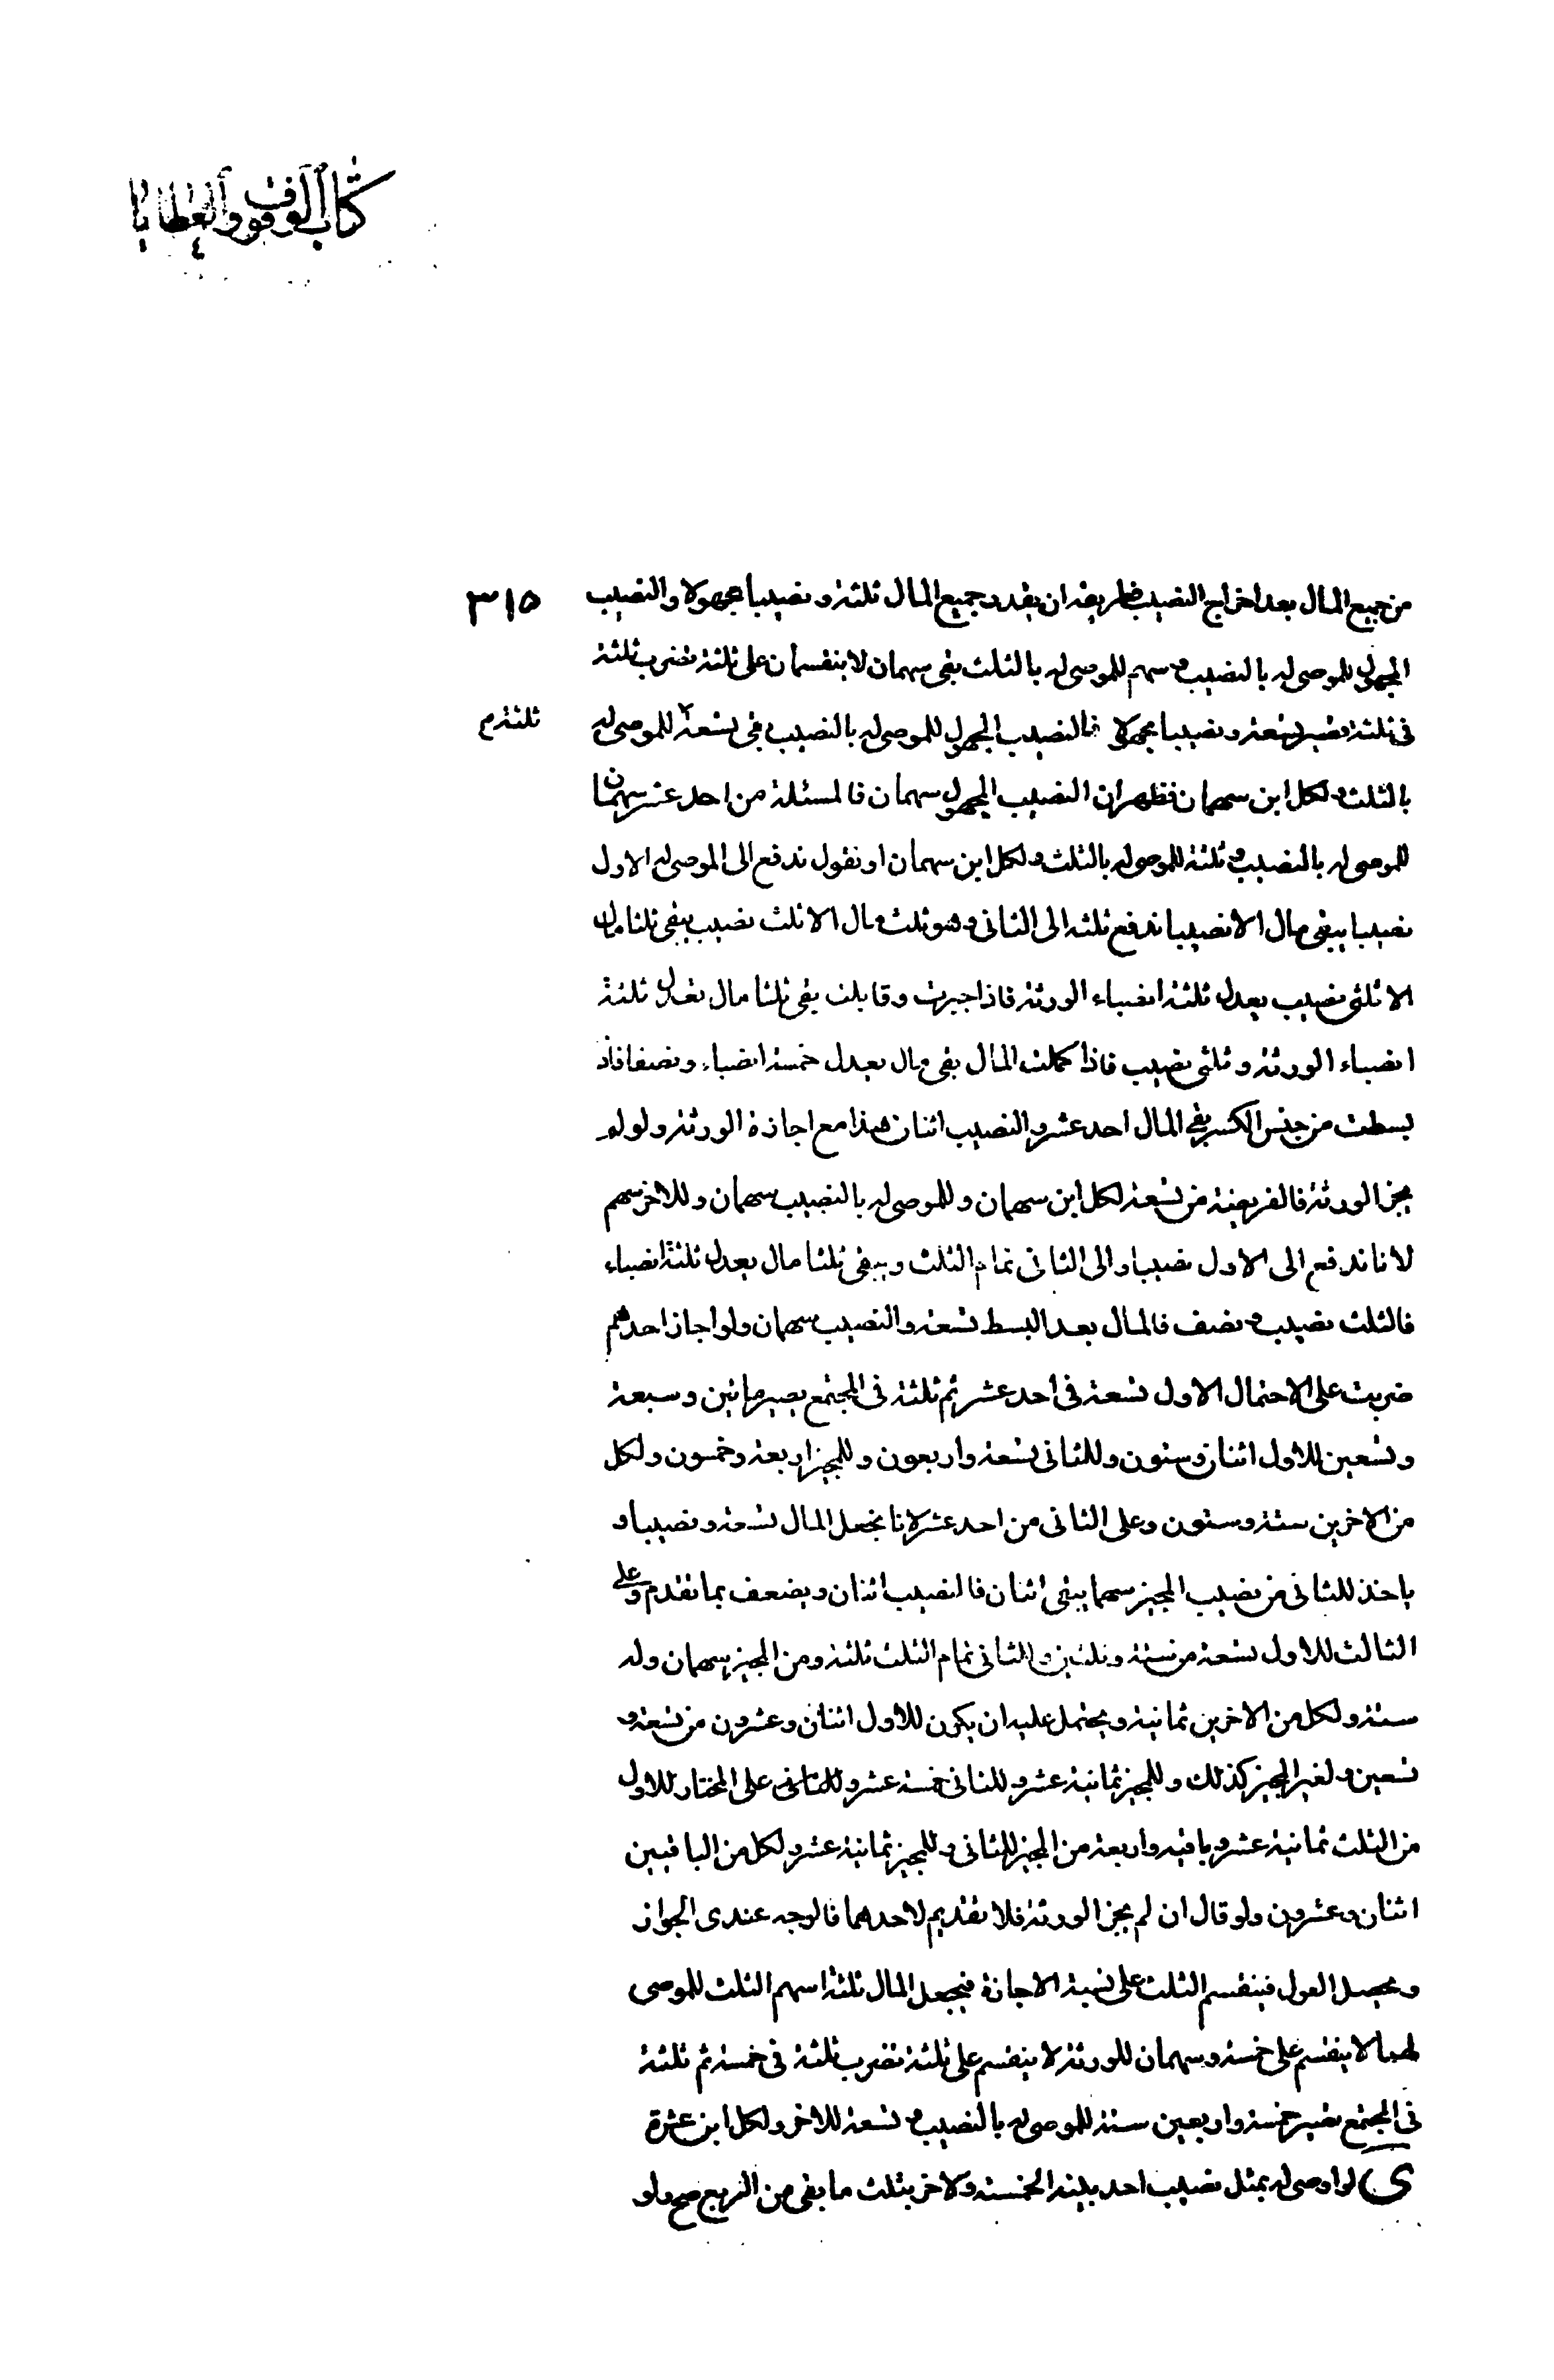 كتاب الوقوف والعطايا
من جميع المال بعد اخراج النصيب فطريقه ان يقدر جميع المال ثلثة ونصيبا مجهولا والنصيب
٣١٥
المجهول للموصى له بالنصيب و سهم للموصى له بالثلث بقى سهمان لا ينقسمان على ثلثة تضرب ثلثة
في ثلثة تصير تسعة ونصيبا مجهولا فالنصيب المجهول للموصى له بالنصيب بقى تسعة للموصى له
ثلثة م
بالثلث ولكل ابن سهمان فظهر ان النصيب المجهول سهمان فالمسئلة من احد عشر سهمان
للموصى له بالنصيب وثلثة للموصى له بالثلث ولكل ابن سهمان او نقول ندفع الى الموصى له الاول
نصيبا يبقى مال الا نصيبا ندفع ثلثه الى الثانى وهو ثلث مال الا ثلث نصيب يبقى ثلثا مال
الا ثلثى نصيب يعدل ثلثة انصباء الورثة فاذا جبرت وقابلت بقى ثلثا مال تعدل ثلثة
انصباء الورثة وثلثى نصيب فاذا كملت المال بقى مال يعدل خمسة انصباء ونصفا فاذا
بسطت من جنس الكسر بقى المال احد عشر والنصيب اثنان هذا مع اجازة الورثة ولو لم
يجز الورثة فالفريضة من تسعة لكل ابن سهمان وللموصى له بالنصيب سهمان وللاخر سهم
لانا ندفع الى الاول نصيبا والى الثانى تمام الثلث ويبقى ثلثا مال يعدل ثلثة انصباء
فالثلث نصيب و نصف فالمال بعد البسط تسعة والنصيب سهمان ولو اجاز احدهم
ضربت على الاحتمال الاول تسعة في احد عشر ثم ثلثة في المجتمع يصير مائتين وسبعة
وتسعين للاول اثنان وستون وللثانى تسعة واربعون وللمجيز اربعة وخمسون ولكل
من الاخرين ستة وستون وعلى الثانى من احد عشر لانا نجعل المال تسعة ونصيبا و
ياخذ للثانى من نصيب المجيز سهما يبقى اثنان فالنصيب اثنان ويضعف بما تقدم وعلى
الثالث للاول تسعة من ستة وثلثين وللثانى تمام الثلث ثلثة ومن المجيز سهمان وله
ستة ولكل من الاخرين ثمانية ويحتمل عليه ان يكون للاول اثنان وعشرون من تسعة و
تسعين ولغير المجيز كذلك وللمجيز ثمانية عشر وللثانى خمسة عشر وللثانى على المختار للاول
من الثلث ثمانية عشر وباقيه واربعة من المجيز للثانى وللمجيز ثمانية عشر ولكل من الباقيين
اثنان وعشرون ولو قال ان لم يجز الورثة فلا تقديم لاحدهما فالوجه عندى الجواز
ويحصل العول فينقسم الثلث على نسبة الاجازة فيجعل المال ثلثة اسهم الثلث للموصى
لهما لا ينقسم على خمسة وسهمان للورثة لا ينقسم على ثلثة تضرب ثلثة في خمسة ثم ثلثة
في المجتمع تصير خمسة واربعين ستة للموصى له بالنصيب و تسعة للاخر ولكل ابن عشرة
ى لو اوصى له بمثل نصيب احد بنيه الخمسة ولاخر بثلث ما بقى من الربع صح ولو